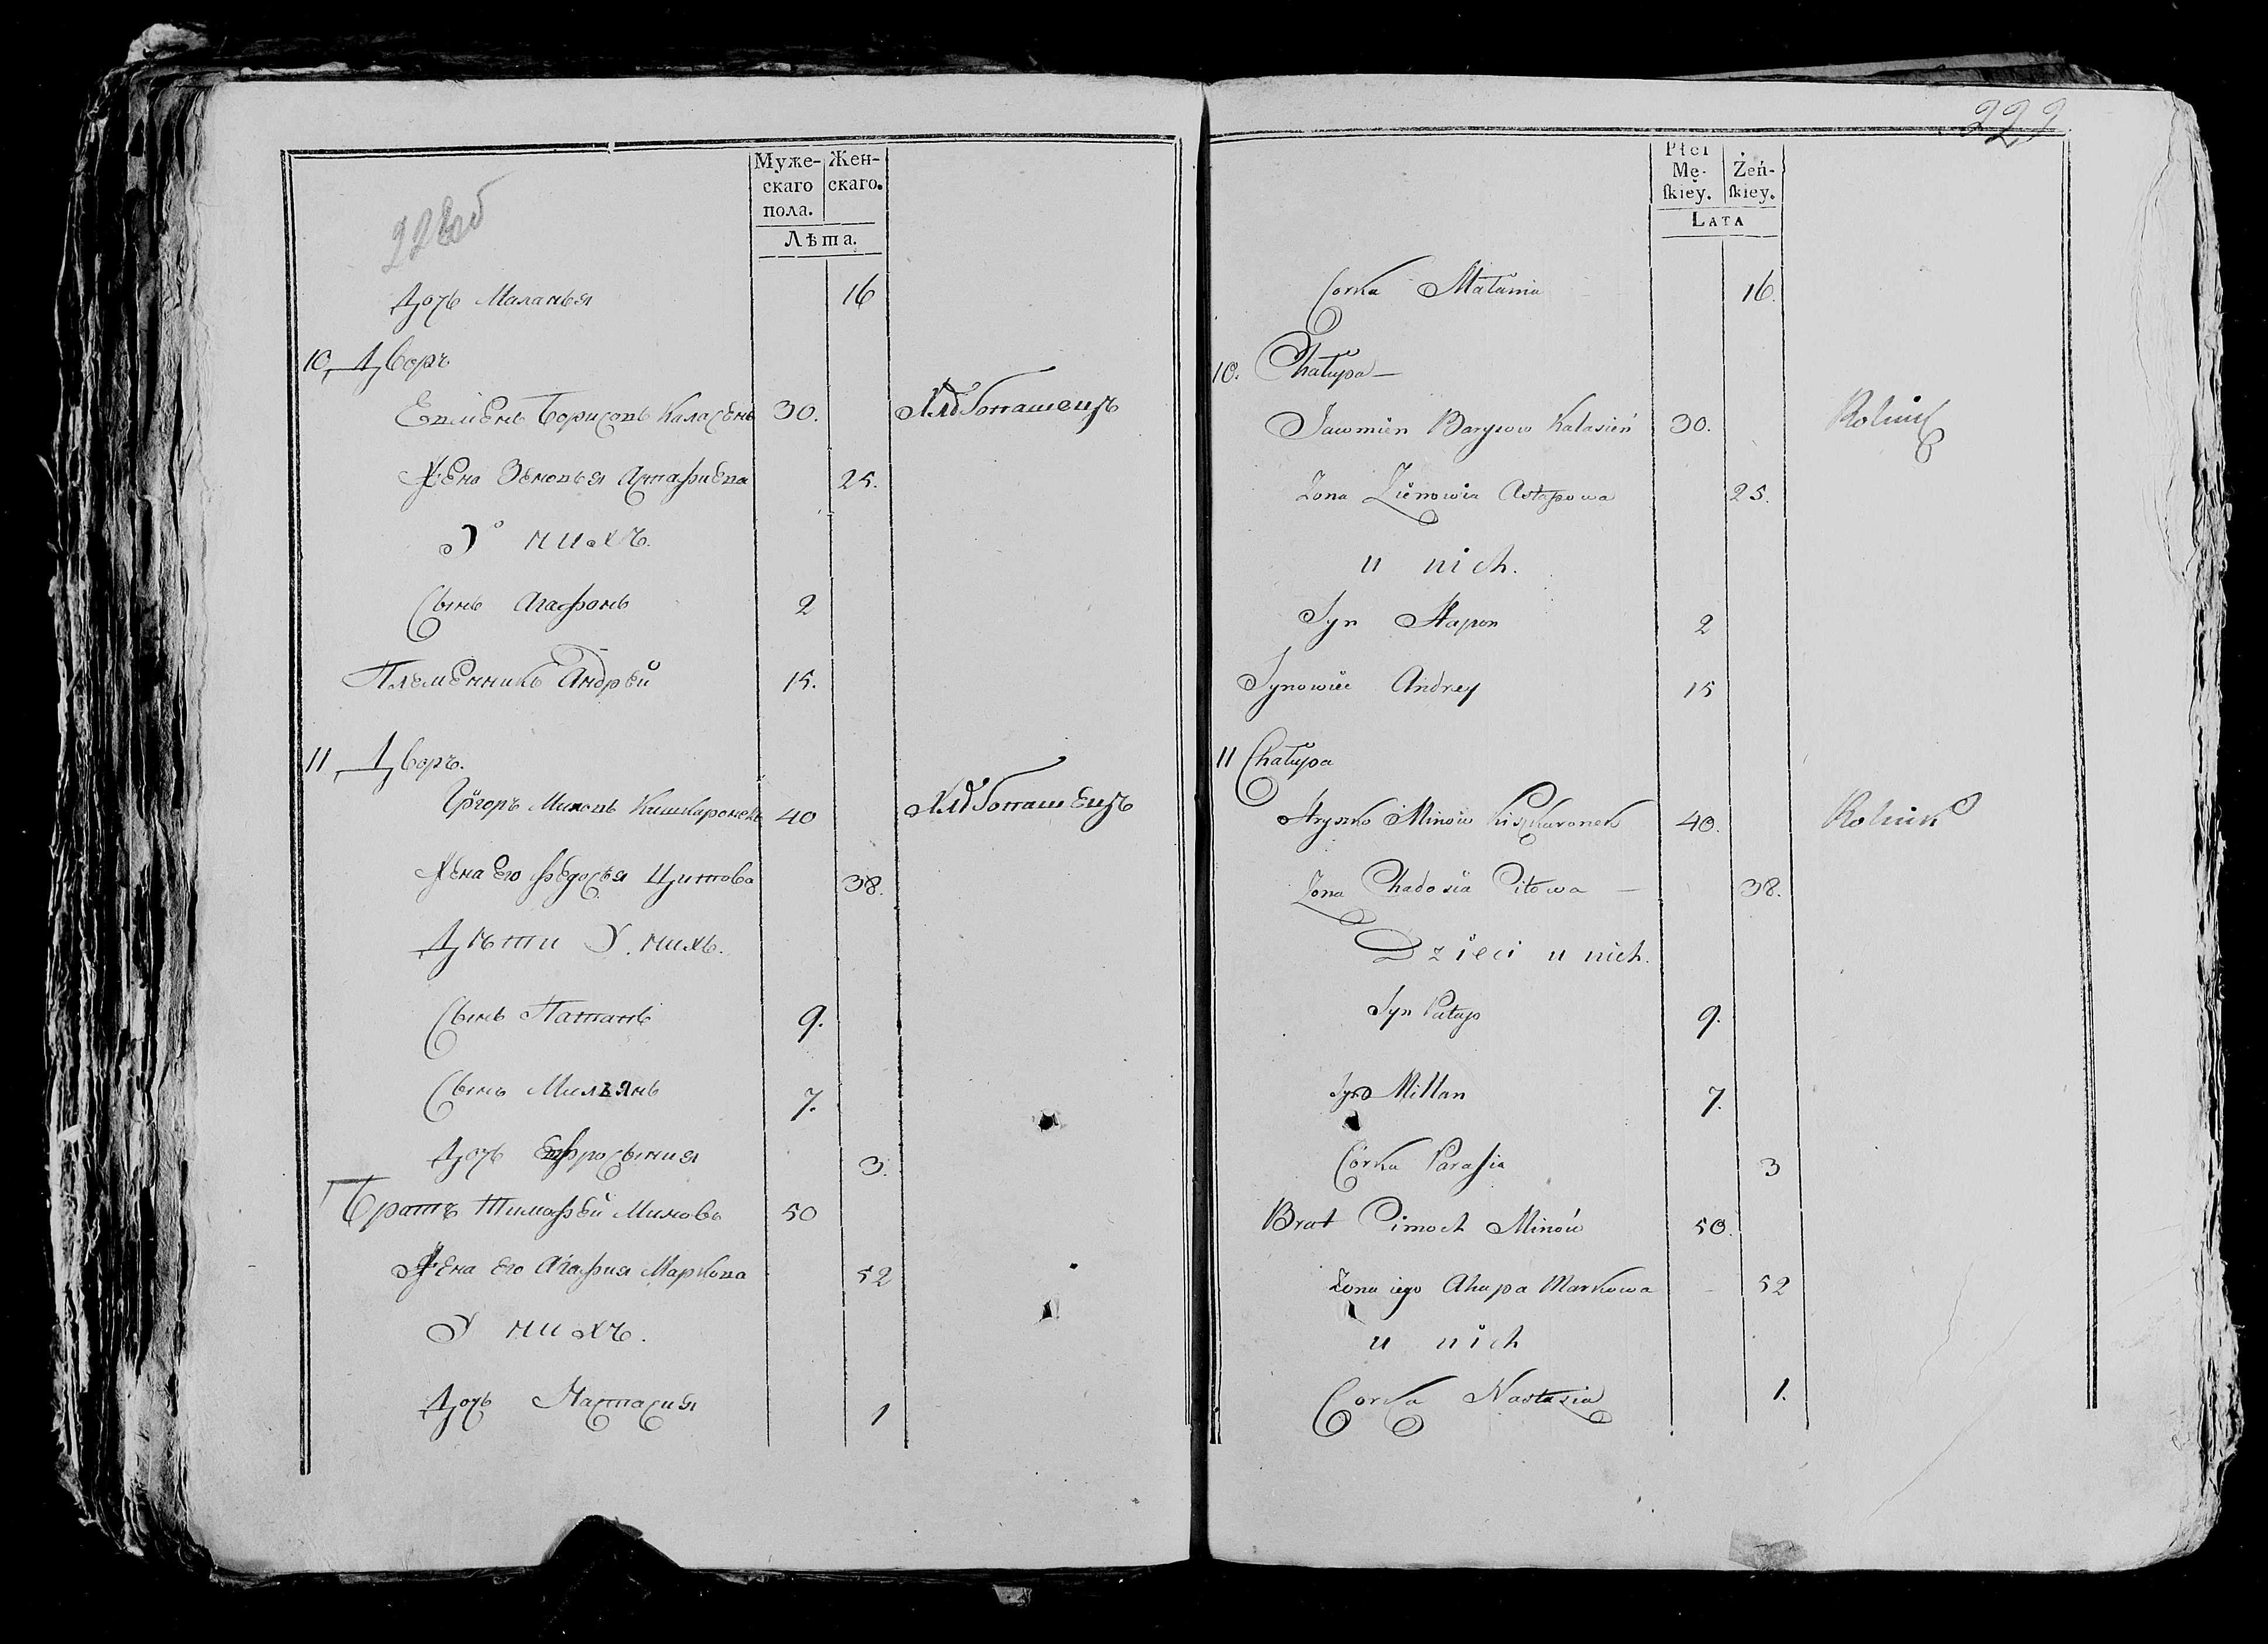 228об
Муже- Жен-
скаго скаго.
пола.
Лѣта.
Дочь Маланья 16
10, Дворъ
Евменъ Борисовъ Каласенъ 30. Хлѣбопашецъ
Жена Зеновья Астафиева 25.
У нихъ.
Сынъ Агафонъ 2
Племенникъ Андрѣй 15.
11, Дворъ.
Григоръ Миновъ Кишкаронекъ 40 Хлѣбопашецъ
Жена его Федосья Цитова 38.
Дѣти У. нихъ.
Сынъ Патапъ 9.
Сынъ Мильянъ 7.
Дочь Ефросыния 3.
Братъ Тимафѣй Миновъ 50
Жена его Агафия Маркова 52
У нихъ.
Дочь Настасия 1
229
Płci
Mę- Żeń-
ſkiey. ſkiey.
LATA
Corka Małania 16.
10. Chałupa —
Jawmien Barysow Kalasień 30. Rolnik
Zona Zienowia Astapowa 25.
u nich.
Syn Hapon 2
Synowiec Andrey 15
11 Chałupa
Hryszko Minow Kiszkaronek 40. Rolnik
Zona Chadosia Citowa — 38.
Dzieci u nich.
Syn Patap 9.
Syn Millan 7.
Córka Paraſia 3
Brat Cimoch Minow 50.
Zona iego Ahapa Markowa 52
u nich
Corka Nastazia 1.